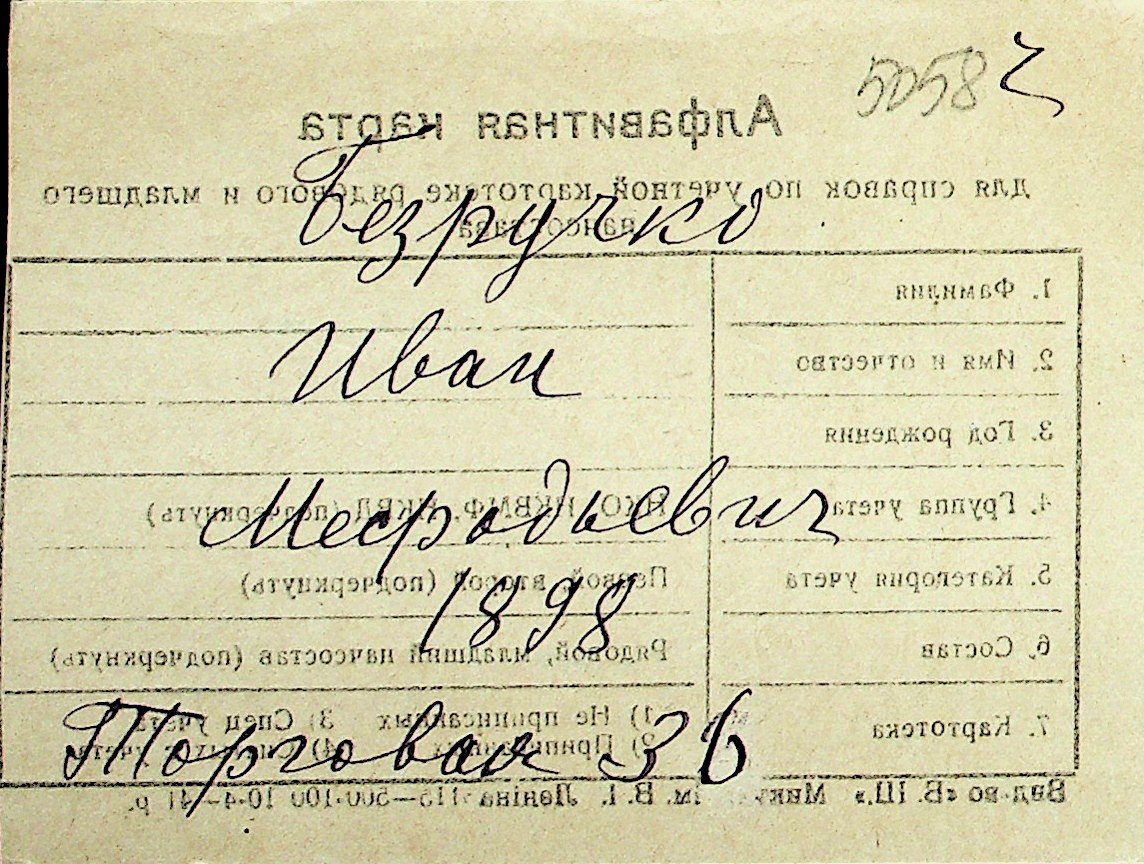 5058 ч
Алфавитная карта
для справок по учетной картотеке рядового и младшего
начсостава
Безручко
1. Фамилия
Иван
2. Имя и отчество
3. Год рождения
Мефодьевич
4. Группа учета НКО, НКВМФ, НКВД (подчеркнуть)
5. Категория учета Первой, второй (подчеркнуть)
1898
6. Состав Рядовой, младший начсостав (подчеркнуть)
7. Картотека 1) Не приписанных 3) Спец учета
2) Приписанных 4) с учета
Торговая 36
Вид-во «В. Ш.» ім. В. І. Леніна 115—500·100 10·4—41 р.